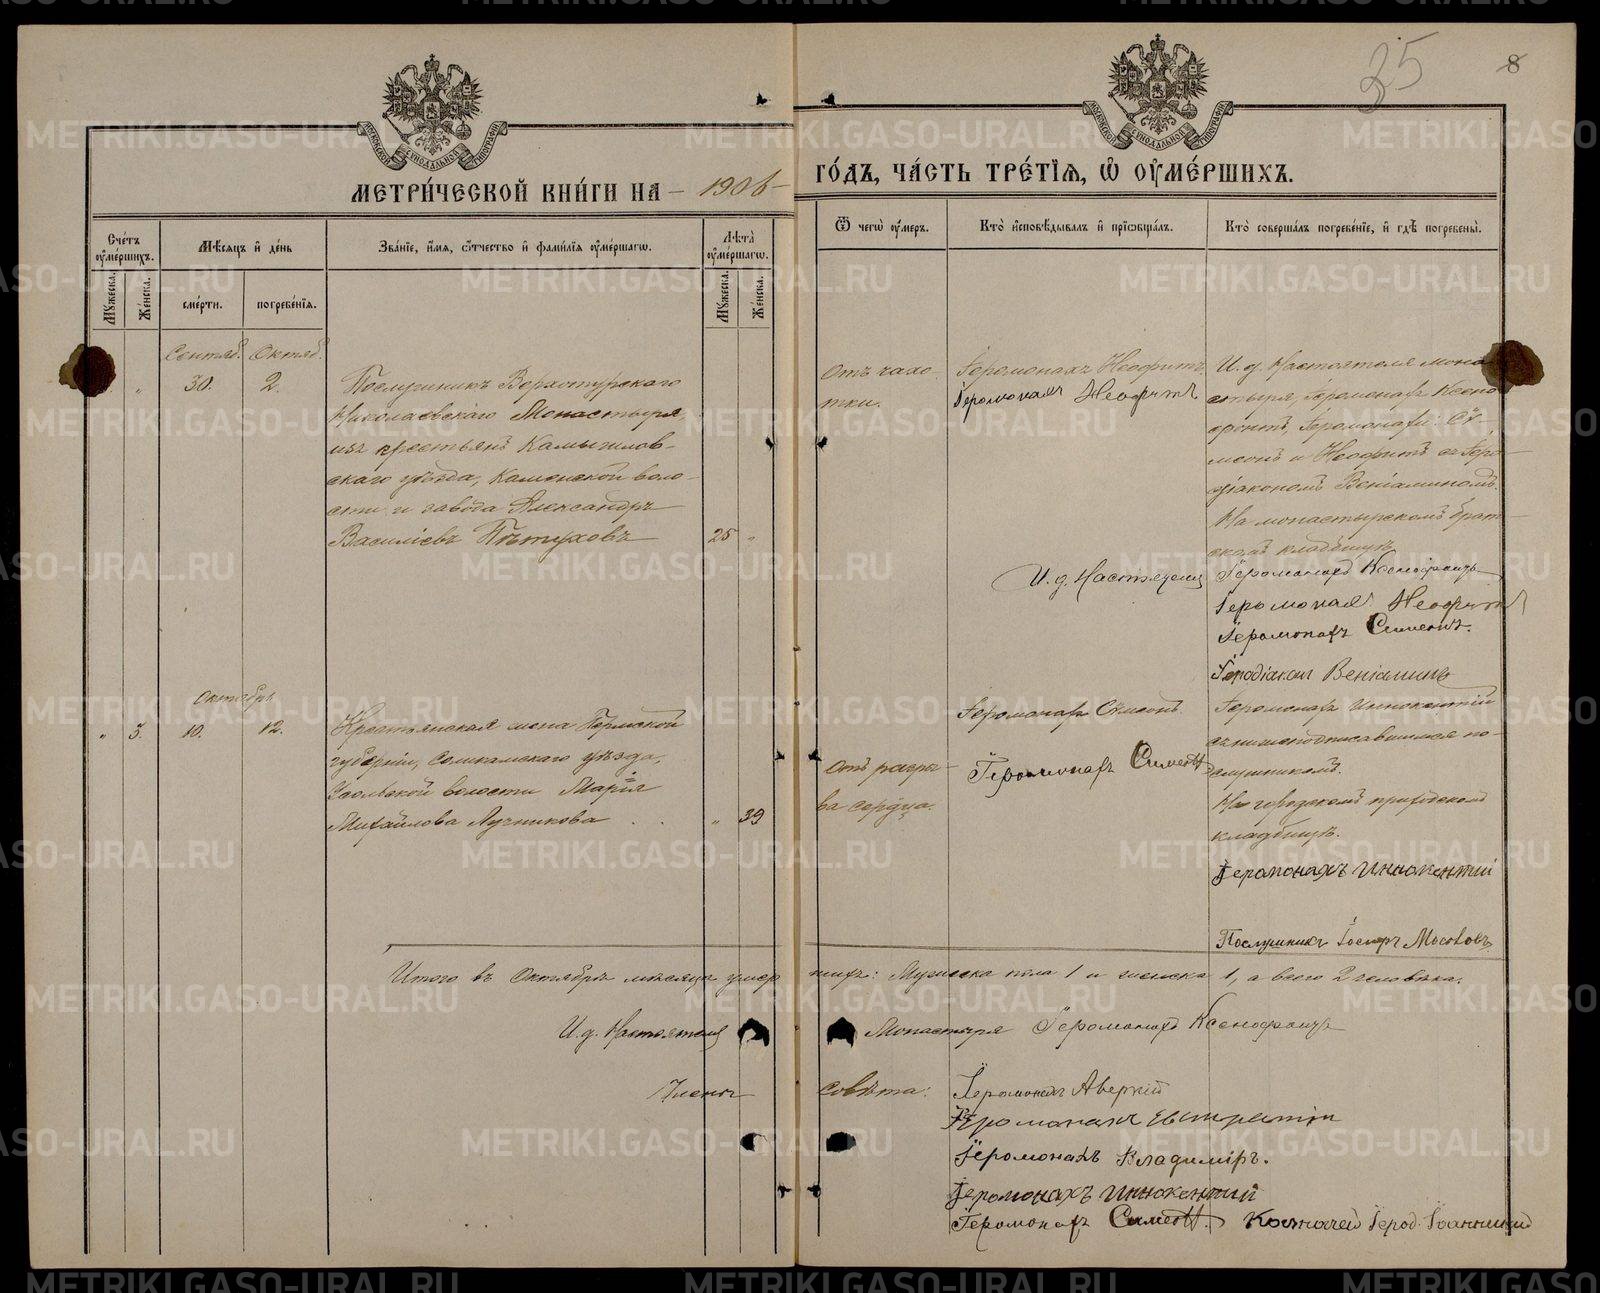 35
8
МОСКОВСКОЙ СѴНОДАЛЬНОЙ ТИПОГРАФІИ
МОСКОВСКОЙ СѴНОДАЛЬНОЙ ТИПОГРАФІИ
МЕТРИ́ЧЕСКОЙ КНИ́ГИ НА – 1906 –
ГО́ДЪ, ЧА́СТЬ ТРЕ́ТІѦ, Ѿ ОУ҆МЕ́РШИХЪ.
Сче́тъ оу҆ме́ршихъ.
Мѣ́сѧцъ и҆ де́нь
Зва́нїе, и҆́мѧ, ѻ҆́тчество и҆ фами́лїѧ оу҆ме́ршагѡ.
Лѣ́та оу҆ме́ршагѡ.
Ѿ чегѡ̀ оу҆́меръ.
Кто̀ и҆сповѣ́дывалъ и҆ прїѡбща́лъ.
Кто̀ соверша́лъ погребе́нїе, и҆ гдѣ̀ погребены̀.
Мꙋ́жеска.
Же́нска.
сме́рти.
погребе́нїѧ.
Мꙋ́жеска.
Же́нска.
Сентяб. Октяб.
" 30. 2.
Послушникъ Верхотурскаго
Николаевскаго Монастыря
изъ крестьянъ Камышлов-
скаго уѣзда, Каменской воло-
сти и завода Александръ
Василіевъ Пѣтуховъ 25 "
Отъ чахо-
тки.
Іеромонахъ Неофитъ.
Іеромонахъ Неофитъ
И. д. Настоятеля мона-
стыря, Іеромонахъ Ксено-
фонтъ, Іеромонахи: Сѵ-
меонъ и Неофитъ съ Іеро-
діакономъ Веніаминомъ.
На монастырскомъ брат-
скомъ кладбищѣ.
И. д. Настоятеля Іеромонахъ Ксенофонтъ
Іеромонахъ Неофитъ
Іеромонахъ Симеонъ.
Іеродіакон Веніаминъ
Октябрь
" 3. 10. 12.
Крестьянская жена Пермской
губерніи, Соликамскаго уѣзда,
Усольской волости Марія
Михайлова Лучникова . . " 39
Отъ разры-
ва сердца.
Іеромонахъ Сѵмеонъ.
Іеромонахъ Симеонъ
Іеромонахъ Иннокентій
съ нижеподписавшимся по-
слушникомъ.
На городскомъ приходскомъ
кладбищѣ.
Іеромонахъ Иннокентий
Послушникъ Іосифъ Мосовъ
Итого въ Октябрѣ мѣсяцѣ умер-
шихъ: Мужеска пола 1 и женска 1, а всего 2 человѣка.
И. д. Настоятеля Монастыря Іеромонахъ Ксенофонтъ
Члены Совѣта: Іеромонахъ Аверкій
Іеромонахъ Евстратій
Іеромонахъ Владиміръ.
Іеромонахъ Иннокентий
Іеромонахъ Симеонъ. Казначей Іерод. Іоанникій
METRIKI.GASO-URAL.RU